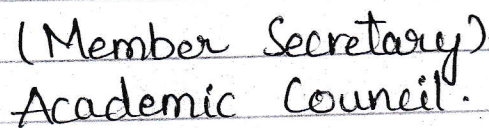 (Member Secretary)
Academic Council.